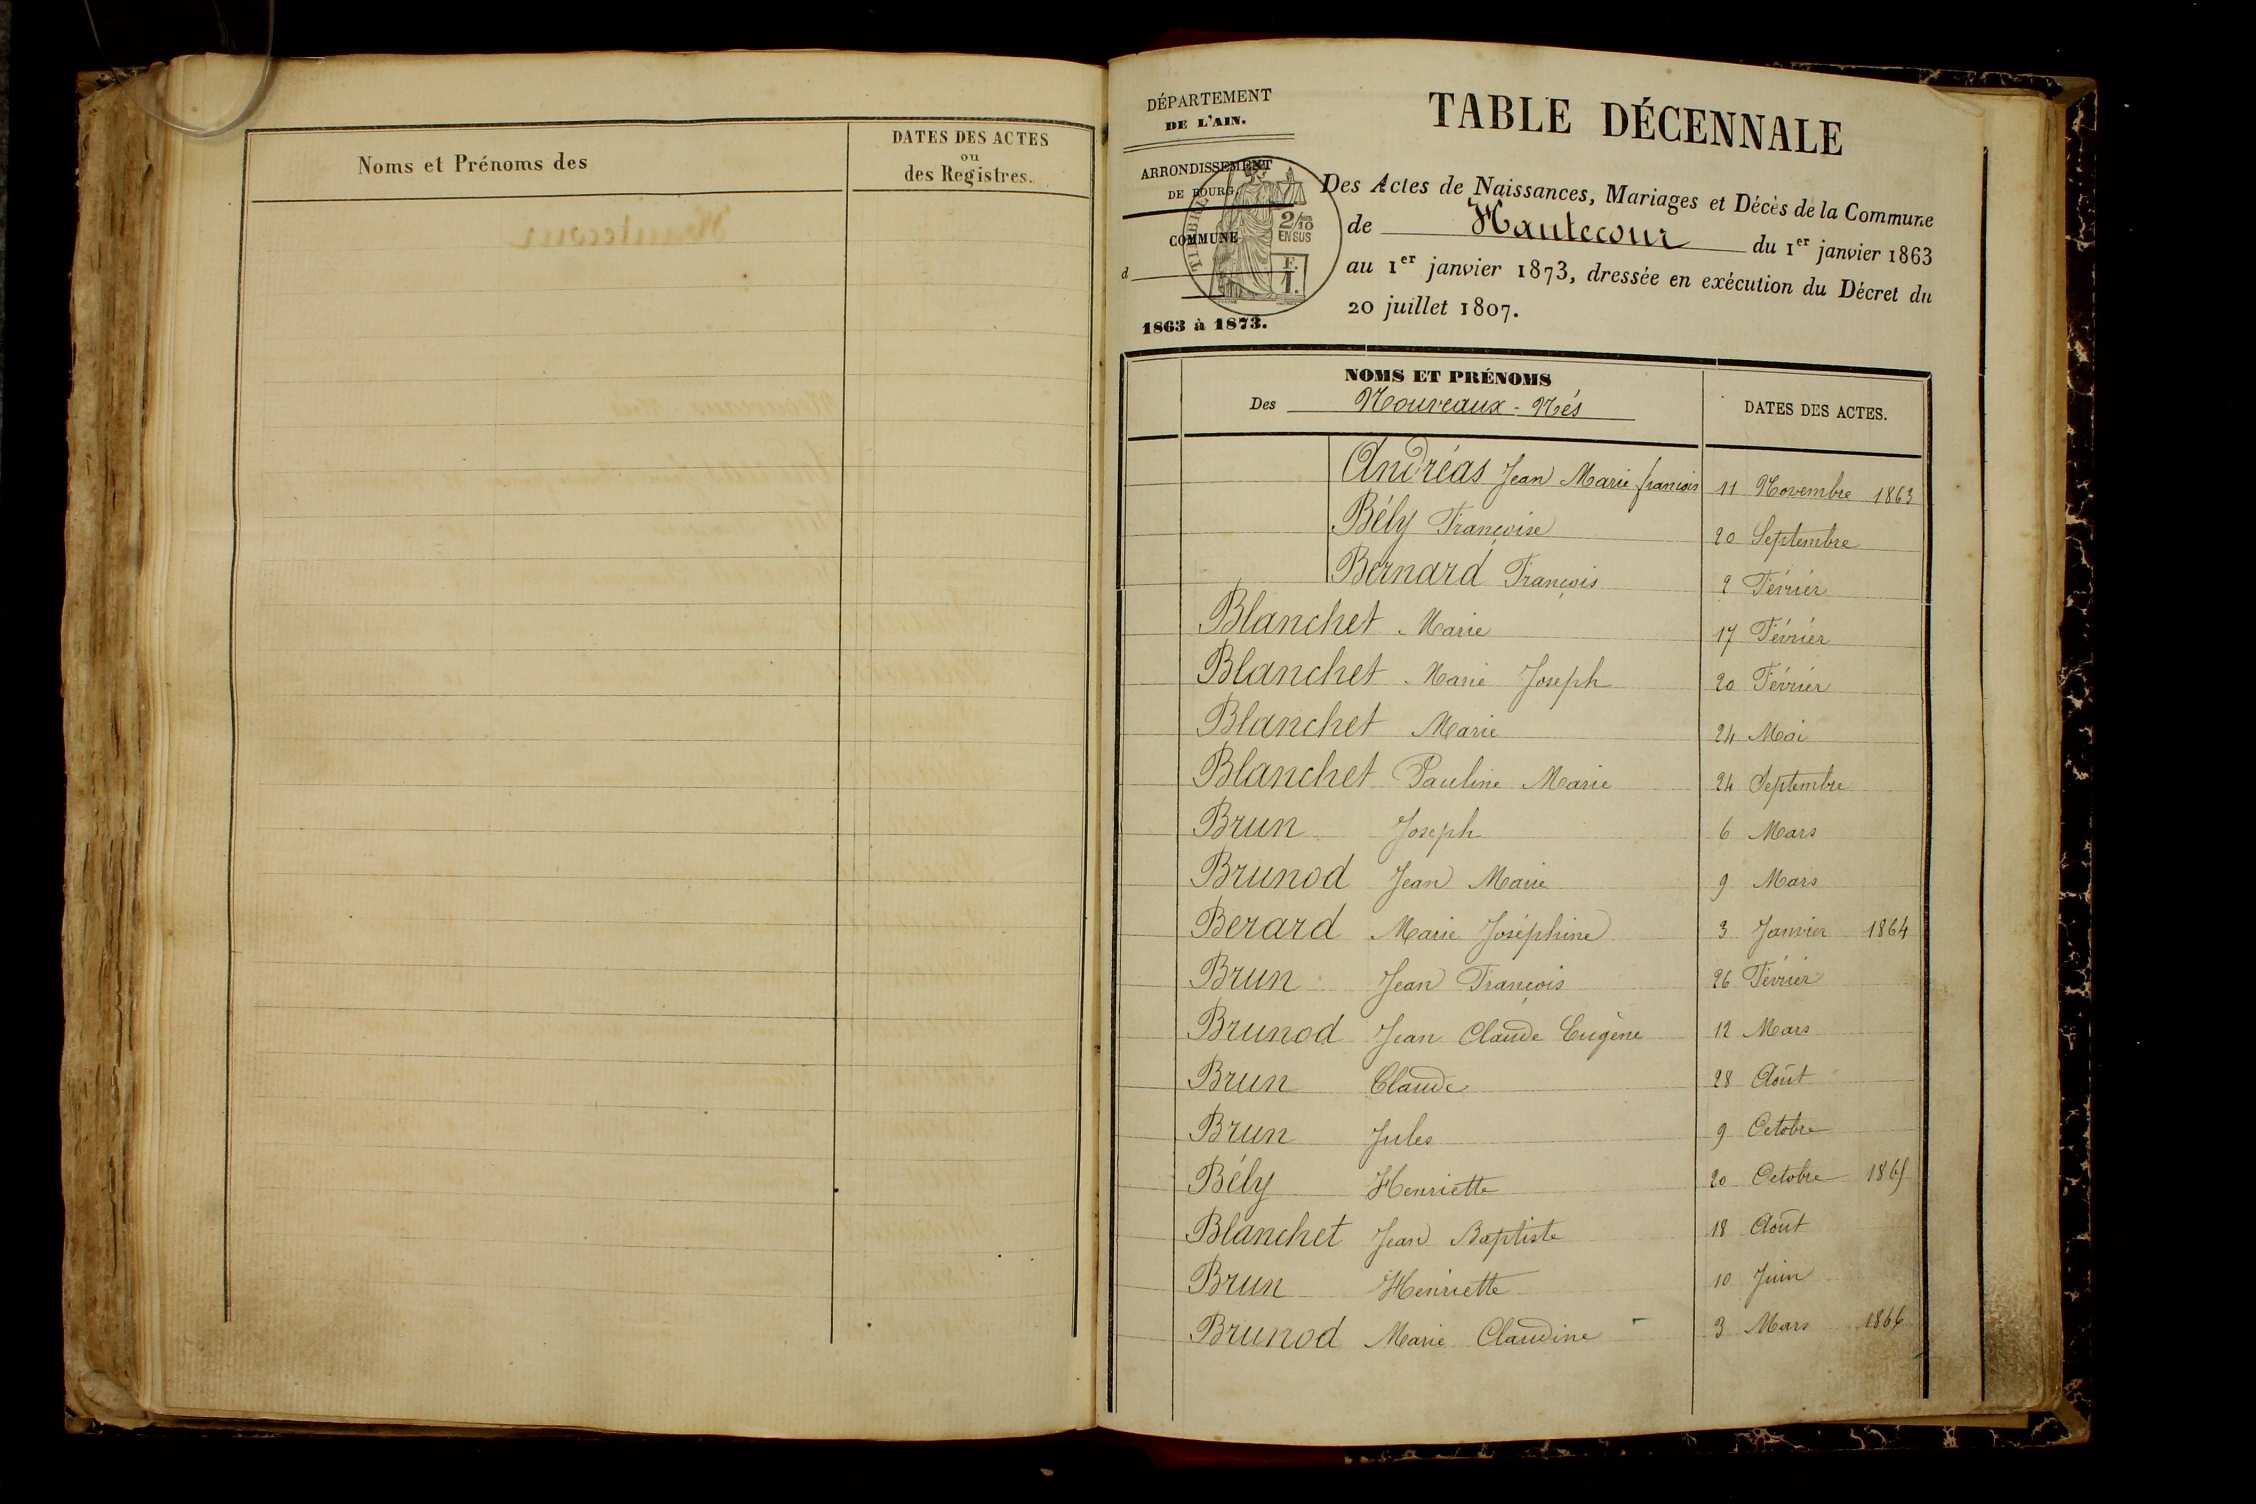 Noms et Prénoms des
DATES DES ACTES
ou
des Registres.
DÉPARTEMENT
DE L'AIN.
ARRONDISSEMENT
DE BOURG.
COMMUNE
d
1863 à 1873.
TIMBRE
2/10
EN SUS
F.
1.
TABLE DÉCENNALE
Des Actes de Naissances, Mariages et Décès de la Commune
de Hautecour du 1er janvier 1863
au 1er janvier 1873, dressée en exécution du Décret du
20 juillet 1807.
NOMS ET PRÉNOMS
Des Nouveaux-Nés
DATES DES ACTES.
Andréas Jean Marie françois 11 Novembre 1863
Bély Françoise 20 Septembre
Bernard François 2 Février
Blanchet Marie 17 Février
Blanchet Marie Joseph 20 Février
Blanchet Marie 24 Mai
Blanchet Pauline Marie 24 Septembre
Brun Joseph 6 Mars
Brunod Jean Marie 9 Mars
Berard Marie Joséphine 3 Janvier 1864
Brun Jean François 26 Février
Brunod Jean Claude Eugène 12 Mars
Brun Claude 28 Août
Brun Jules 9 Octobre
Bély Henriette 20 Octobre 1865
Blanchet Jean Baptiste 18 Août
Brun Henriette 10 Juin
Brunod Marie Claudine 3 Mars 1866